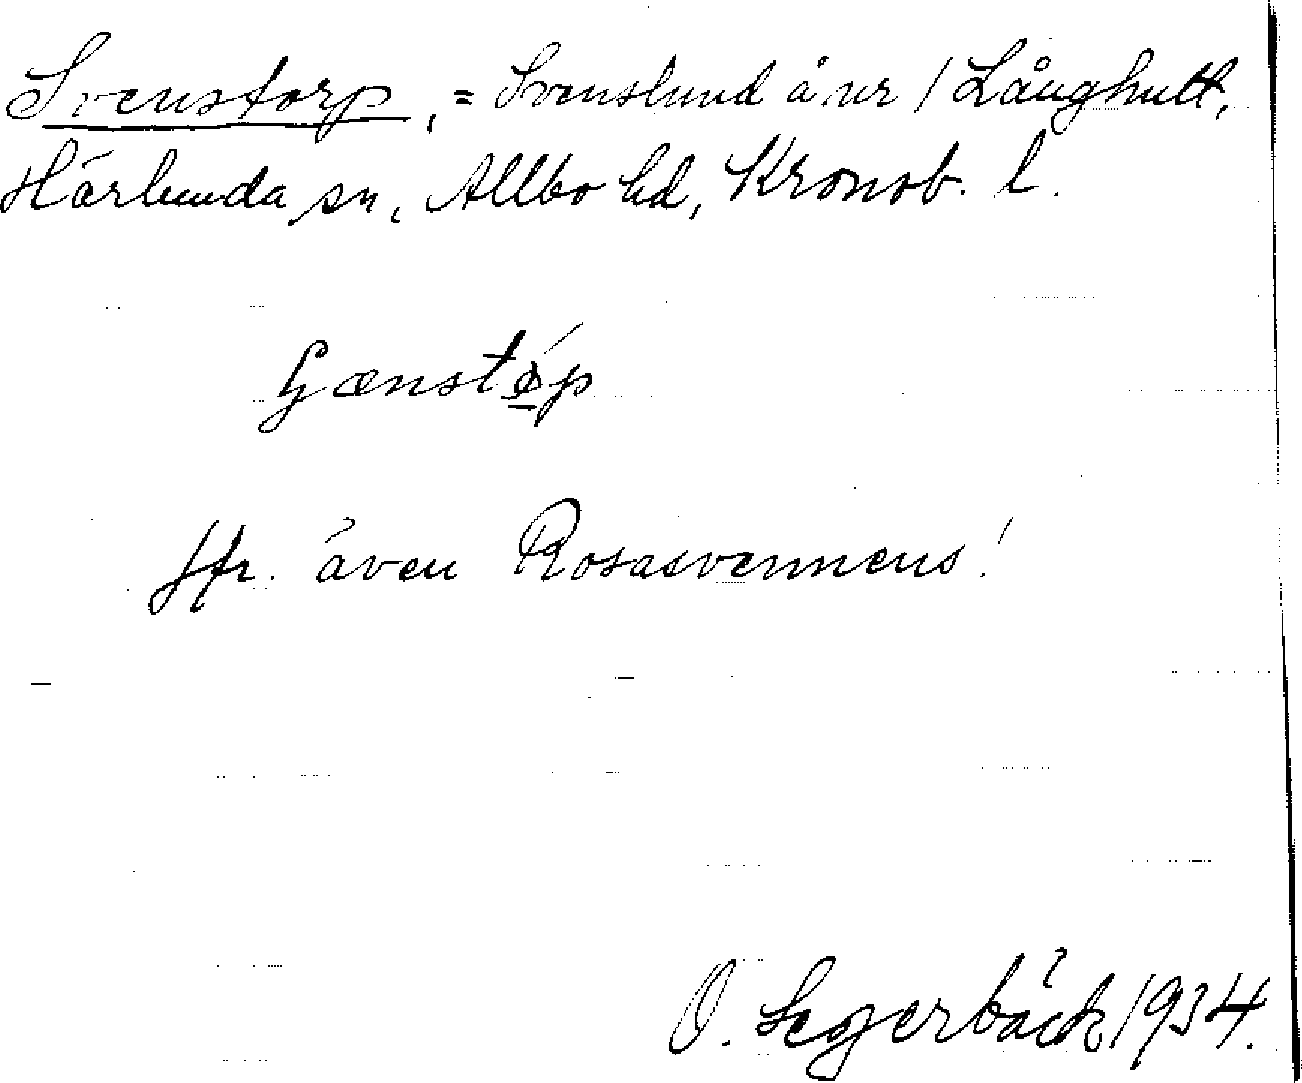 Svenstorp, = Svenslund å nr 1 Långhult,
Härlunda sn, Allbo hd, Kronob. l.
Jfr. även Rosasvennens!
O. Segerbäck 1934.